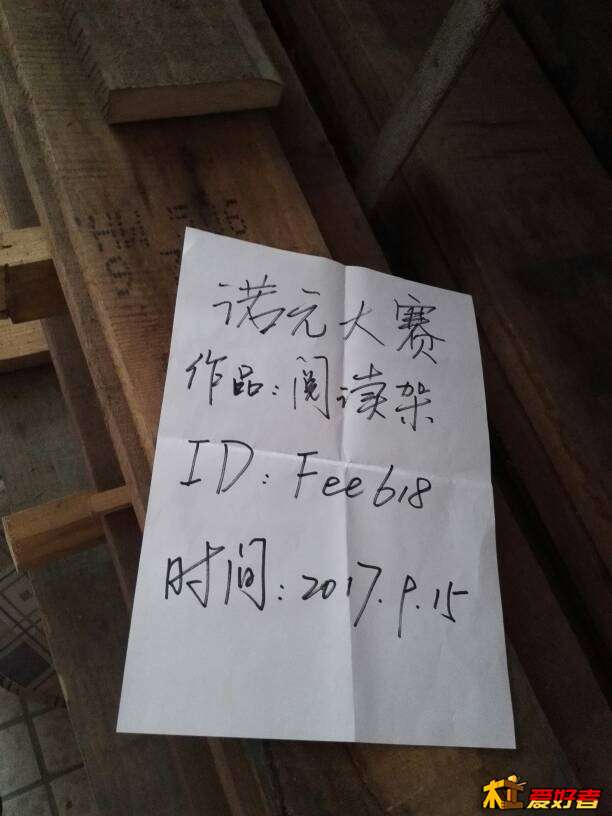 诺元大赛
作品:阅读架
ID:Fee618
时间:2017.9.15
爱好者